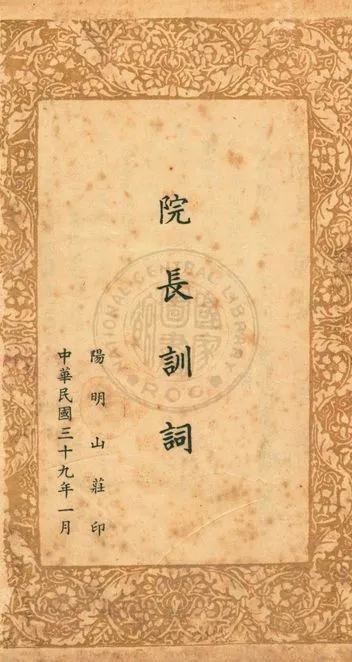 院長訓詞
陽明山莊印
中華民國三十九年一月
NATIONAL CENTRAL LIBRARY
國家圖書館